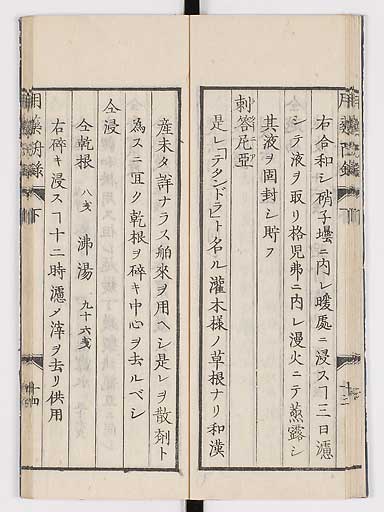 右合和シ硝子壜ニ内レ暖處ニ浸スヿ三日濾
シテ液ヲ取リ格児弗ニ内レ漫火ニテ蒸露シ
其液ヲ固封シ貯フ
刺答尼亞
是レ「テタンドラ」ト名ル灌木様ノ草根ナリ和漢
産未タ詳ナラス舶來ヲ用ヘシ是レヲ散剤ト
為スニ宜ク乾根ヲ砕キ中心ヲ去ルベシ
仝浸
仝乾根 八戔 沸湯 九十六戔
右碎キ浸スヿ十二時濾メ滓ヲ去リ供用
用藥 下
十四